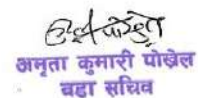 अमृता कुमारी पोख्रेल
वडा सचिव